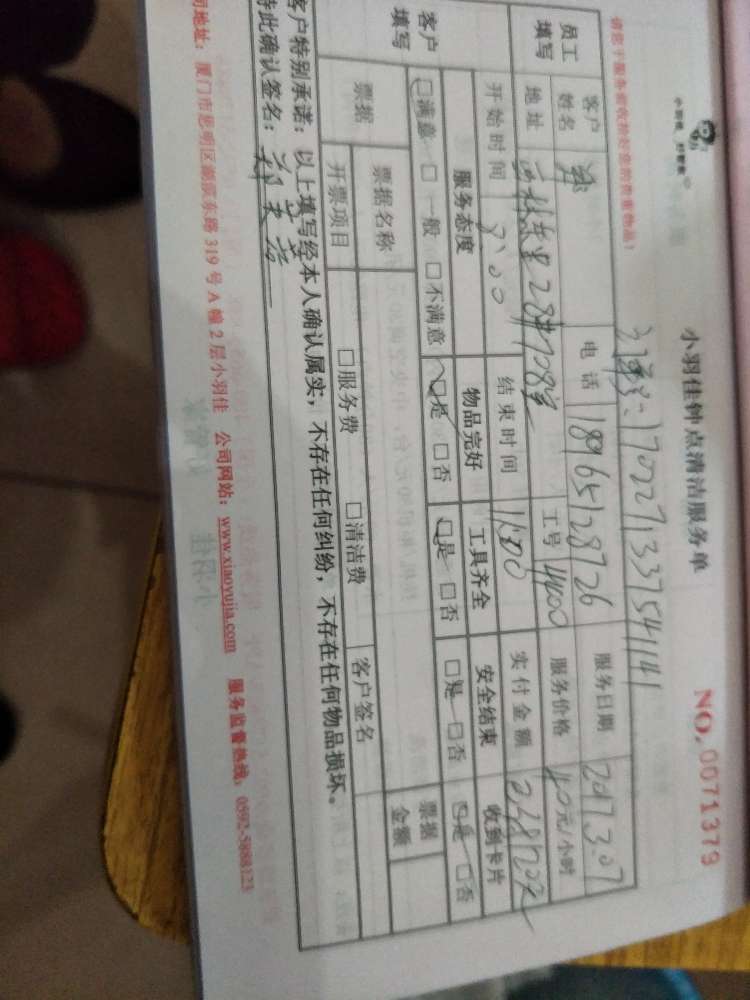 小羽佳 好管家
小羽佳钟点清洁服务单
NO. 0071379
请您于服务前收拾好您的贵重物品!
1702271337541141
员工填写
客户姓名
电话 18965128726
服务日期 2017.3.07
地址 28#708室
工号 4400
服务价格 40元/小时
开始时间 8:00
结束时间
实付金额
客户填写
服务态度 物品完好 工具齐全 安全结束 收到卡片
□满意 □一般 □不满意 □是 □否 □是 □否 □是 □否 □是 □否
票据 票据名称 □服务费 □清洁费 客户签名 票据金额
开票项目
客户特别承诺:以上填写经本人确认属实,不存在任何纠纷,不存在任何物品损坏。
特此确认签名:
司地址:厦门市思明区湖滨东路319号A幢2层小羽佳 公司网站:www.xiaoyujia.com 服务监督热线:0592-5888123